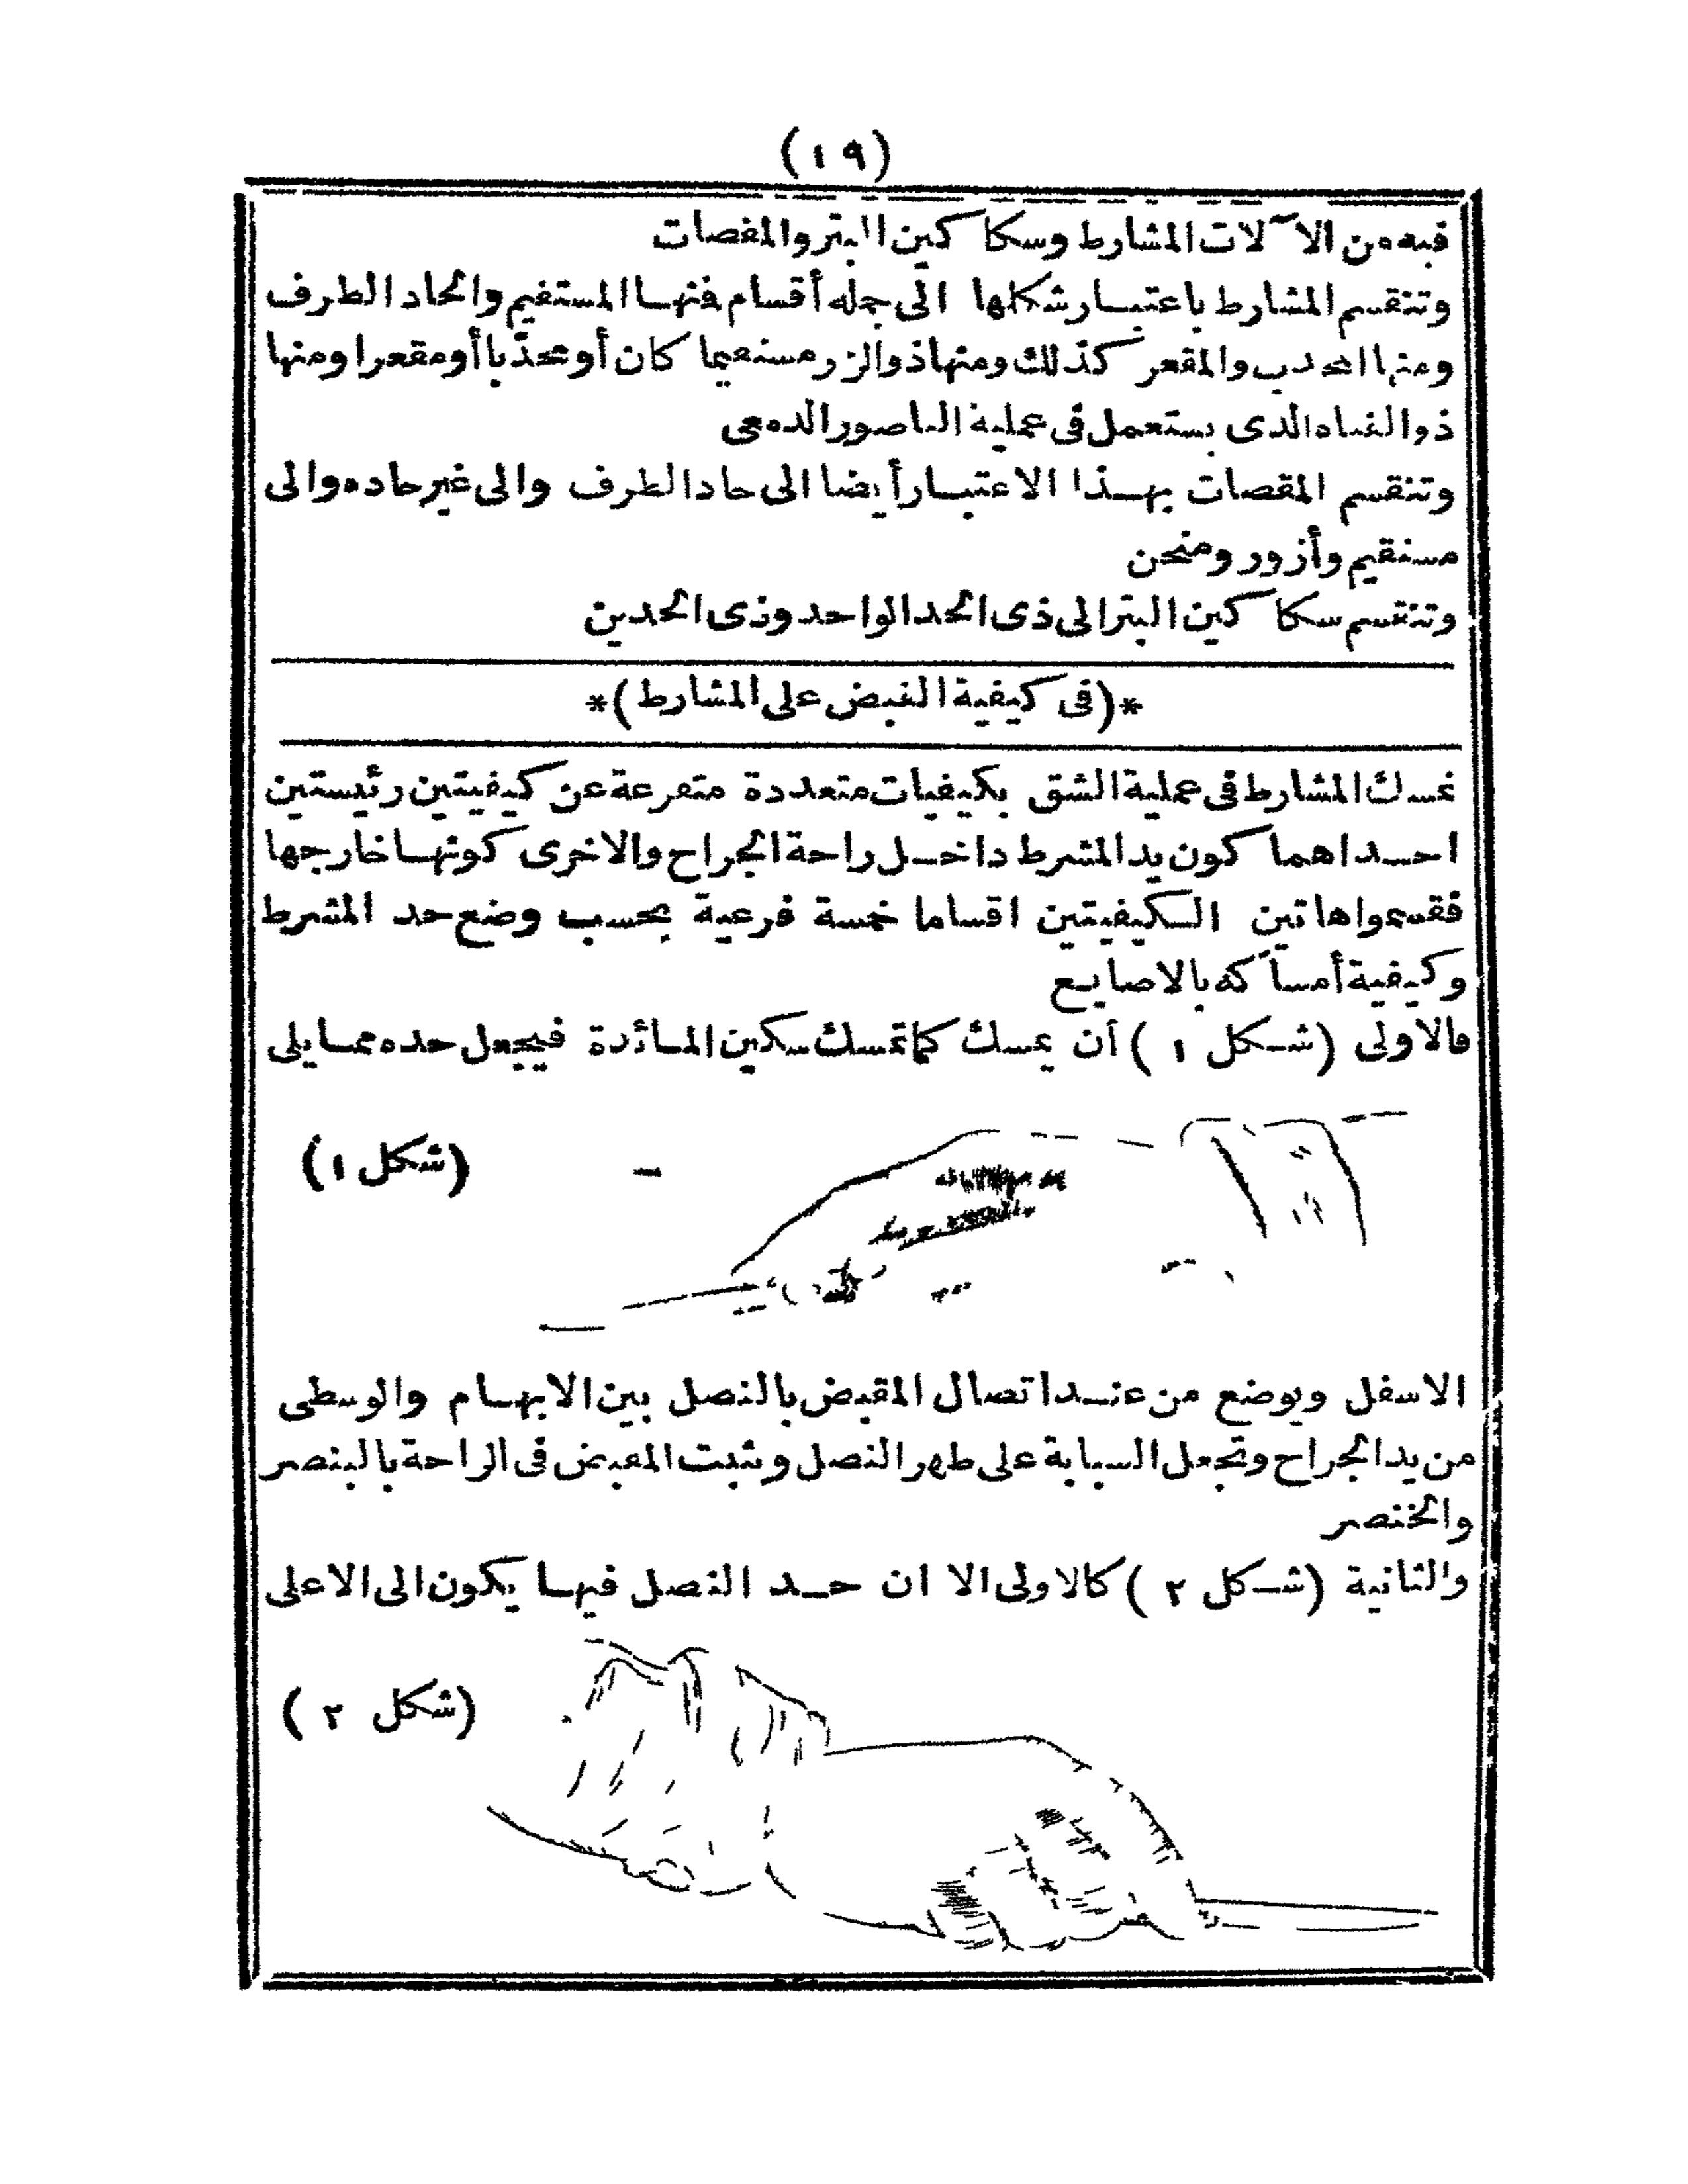 (١٩)
فيه من الآلات المشارط وسكاكين البتر والمقصات
وتنقسم المشارط باعتبار شكلها الى جملة أقسام فنها المستقيم والحاد الطرف
ومنها المحدب والمقعر كذلك ومنها ذو الزر مستقيما كان أو محدّبا أو مقعرا ومنها
ذو القناه الذى يستعمل فى عملية الناصور الدمعى
وتنقسم المقصات بهذا الاعتبار أيضا الى حاد الطرف والى غير حاده والى
مستقيم وأزور ومنحن
وتنقسم سكاكين البتر الى ذى الحد الواحد وذى الحدين
*(فى كيفية القبض على المشارط)*
تمسك المشارط فى عملية الشق بكيفيات متعددة متفرعة عن كيفيتين رئيستين
احداهما كون يد المشرط داخل راحة الجراح والاخرى كونها خارجها
فقسموا هاتين الكيفيتين اقساما خمسة فرعية بحسب وضع حد المشرط
وكيفية أمساكه بالاصابع
فالاولى (شكل ١) أن يمسك كما تمسك سكين المائدة فيجعل حده مما يلى
(شكل ١)
الاسفل ويوضع من عند اتصال المقبض بالنصل بين الابهام والوسطى
من يد الجراح وتجعل السبابة على ظهر النصل ويثبت المقبض فى الراحة بالبنصر
والخنصر
والثانية (شكل ٢) كالاولى الا ان حد النصل فيها يكون الى الاعلى
(شكل ٢)